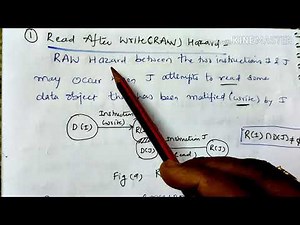 ① Read After Write(RAW) Hazard:-
RAW Hazard between the two instructions I & J
may occur when J attempts to read some
data object that has been modified (write) by I
Instruction I
(write)
D(I)
Instruction J
R(I) ∩ D(J) ≠
D(J)
(read)
R(J)
Fig (a)
KINEMASTER